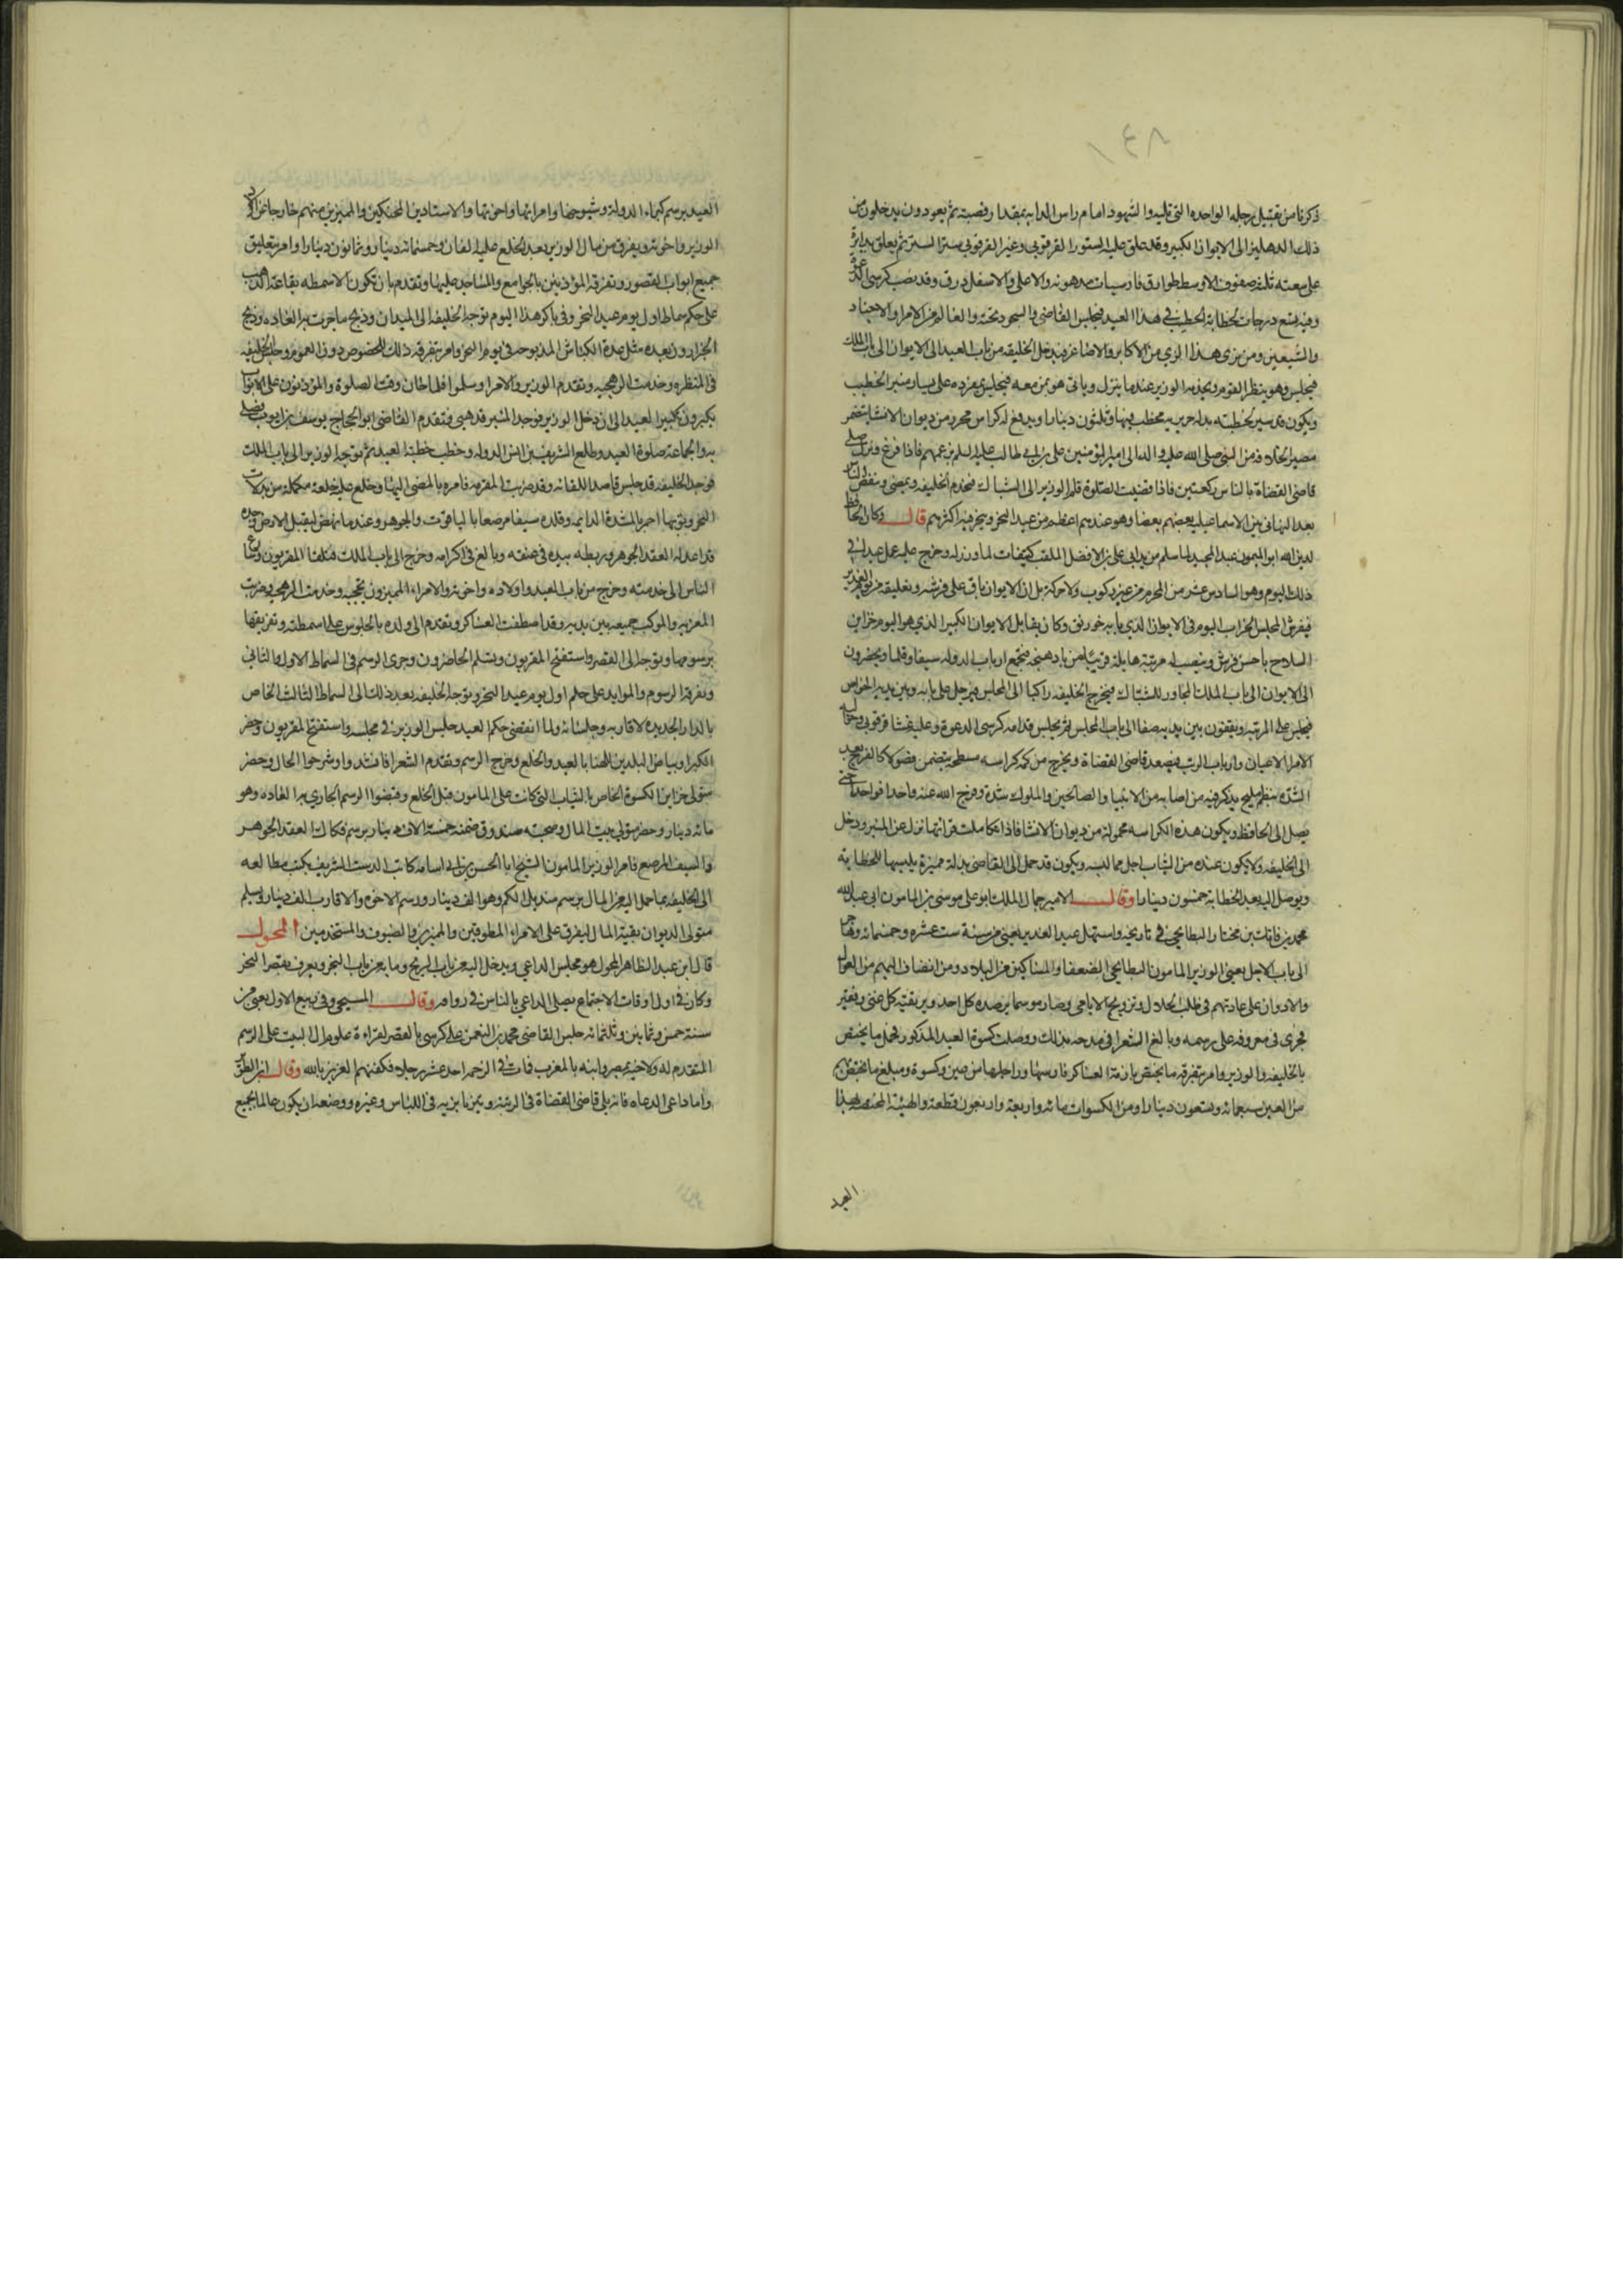 ١٤٨
ذكرنا من تقبيل رجله الواحده التى تليه والشهود امام راس الدابه بمقدار قصبة ثم يعودون يدخلون من
ذلك الدهليز الى الايوان الكبير وقد علق عليه الستور القرقوبى وغير القرقوبى سترا لستر ثم يعلق بدايرة
على سعته ثلثه صفوف الاوسط طوارق فارسيات مدهونه والاعلى والاسفل درق وقد نصب كرسى الدعوة
وفيه تسع درجات لخطابة الخطيب فى هذا العيد فيجلس القاضى والشهود تحته والعالم من الامراء والاجناد
والمتشيعين ومن يرى هذا الرى من الاكابر والاصاغر فيدخل الخليفه من باب العيد الى الايوان الى باب الملك
فيجلس وهو ينظر القوم ويخدمه الوزير عندما ينزل وياتى هو ومن معه فيجلس بمفرده على يسار منبر الخطيب
ويكون قد سير لخطيبه بدله حرير يخطب فيها وثلثون دينارا ويدفع له كراس محرر من ديوان الانشا يتضمن
نص الخلافه من النبى صلى الله عليه واله الى امير المؤمنين على بن ابى طالب عليه السلم بزعمهم فاذا فرغ ونزل صلى
قاضى القضاة بالناس ركعتين فاذا قضيت الصلوة قام الوزير الى الشباك فيخدم الخليفه ويمضى وينفض الناس
بعد التهانى من الاسماعيليه بعضهم بعضا وهو عندهم اعظم من عيد النحر وينحر فيه اكثرهم قال وكان الحافظ
لدين الله ابو الميمون عبد المجيد لما سلم من يد ابى على بن الافضل الملقب كتيفات لما وزر له وخرج عليه عمل عيدا فى
ذلك اليوم وهو السادس عشر من المحرم من غير ركوب ولا حركة بل ان الايوان باق على فرشه وتعليقه من يوم الغدير
فيفرش المجلس الخراب اليوم فى الايوان الذى بابه خورنق وكان يقابل الايوان الكبير الذى هو اليوم خزاين
السلاح باحسن فرش وينصب له مرتبة هايله قريبا من بادهنجه فيجتمع ارباب الدوله سيفا وقلما ويحضرون
الى الايوان الى باب الملك المجاور للشباك فيخرج الخليفه راكبا الى المجلس فيترجل على بابه وبين يديه الخواص
فيجلس على المرتبه ويقفون بين يديه صفا الى باب المجلس ثم يجلس قدامه كرسى الدعوة وعليه غشا قرقوبى وحواليه
الامرا الاعيان وارباب الرتب فيصعد قاضى القضاة ويخرج من كمه كراسه مسطحه يتضمن فصولا كالفرج بعد
الشده بنظم مليح يذكر فيه من اصابه من الانبيا والصالحين والملوك شدة وفرج الله عنه واحدا فواحدا حتى
يصل الى الحافظ ويكون هذه الكراسه محمولة من ديوان الانشا فاذا تكاملت قراتها نزل عن المنبر ودخل
الى الخليفه ولا يكون عنده من الثياب اجل مما لبسه ويكون قد حمل الى القاضى بدلة مميزة يلبسها للخطابة
ويوصل اليه بعد الخطابة خمسون دينارا وقال الامير جمال الملك ابو على موسى بن المامون ابى عبد الله
محمد بن فاتك بن مختار البطايحى فى تاريخه واستهل عيد الغدير يعنى من سنة ست عشره وخمسمائه وهاجر
الى باب الاجل يعنى الوزير المامون البطايحى الضعفا والمساكين من البلاد ومن انضاف اليهم من العوال
والادوان على عادتهم فى طلب الحلال وتزويج الايامى وصار موسما يرصده كل احد ويرتقبه كل غنى وفقير
فجرى فى معروفه على رسمه وبالغ الشعرا فى مدحه بذلك ووصلت كسوة العيد المذكور فحمل ما يختص
بالخليفه والوزير وامر بتفرقه ما يختص بازمة العساكر فارسها وراجلها من عين وكسوة ومبلغ ما يختص بهم
من العين سبعمائه وتسعون دينارا ومن الكسوات مائه واربعة واربعون قطعة والهيئة المختصه بهذا
العيد
العيد برسم كبراء الدولة وشيوخها وامرائها واخوتها والاستادين المحنكين والمميزين منهم خارجا عن اولاد
الوزير واخوته ويفرق من مال الوزير بعد الخلع عليه الفان وخمسمائه دينار وثمانون دينارا وامر بتعليق
جميع ابواب القصور وتفرقه المؤذنين بالجوامع والمساجد عليها وتقدم بان تكون الاسمطه بقاعة الذهب
على حكم سماط اول يوم عيد النحر وفى باكر هذا اليوم توجه الخليفه الى الميدان وذبح ما جرت به العاده وذبح
الجزارون بعده مثل عدة الكباش المذبوحه فى يوم النحر وامر بتفرقه ذلك للخصوص دون العموم وجلس الخليفه
فى المنظره وخدمت الرهجيه وتقدم الوزير والامرا وسلموا فلما حان وقت الصلوة والمؤذنون على الابواب
يكبرون تكبير العيد الى ان دخل الوزير فوجد المنبر قد هيى فتقدم القاضى ابو الحجاج يوسف بن ايوب فصلى
به والجماعة صلوة العيد وطلع الشريف بن انس الدوله وخطب خطبة العيد ثم توجه الوزير الى باب الملك
فوجد الخليفه قد جلس قاصدا للقائه وقد ضربت المقرمه فامره بالمضى اليها وخلع عليه خلعة مكملة من بدلات
النحر وثوبها احمر بالشدة الدايميه وقلده سيفا مرصعا بالياقوت والجوهر وعندما نهض ليقبل الارض وجده
قد اعد له العقد الجوهر وربطه بيده فى عنقه وبالغ فى اكرامه وخرج الى باب الملك فتلقاه المقربون وسارع
الناس الى خدمته وخرج من باب العيد واولاده واخوته والامراء المميزون بحجبه وخدمت الرهجيه وضربت
العربيه والموكب جميعه بين يديه وقد اصطفت العساكر وتقدم الى ولده بالجلوس على اسمطته وتفريقها
برسومها وتوجه الى القصر واستفتح المقربون وسلم الحاضرون وجرى الرسم فى السماط الاول والثانى
وتفرقه الرسوم والموايد على حكم اول يوم عيد النحر وتوجه الخليفه بعد ذلك الى السماط الثالث الخاص
بالدار الجديده لاقاربه وجلسائه ولما انقضى حكم العيد جلس الوزير فى مجلسه واستفتح المقربون وحضر
الكبرا وبياض البلدين للهنا بالعيد والخلع وخرج الرسم وتقدم الشعرا فانشدوا وشرحوا الحال وحضر
متولى خزاين الكسوة الخاص بالثياب التى كانت على المامون قبل الخلع وقبضوا الرسم الجارى به العاده وهو
مائه دينار وحضر متولى بيت المال وصحبته صندوق ضمنه خمسة الاف دينار برسم فكاك العقد الجوهر
والسيف المرصع فامر الوزير المامون الشيخ ابا الحسن بن ابى اسامه كاتب الدست الشريف بكتب مطالعه
الى الخليفه بما حمل اليه من المال برسم منديل الكم وهو الف دينار ورسم الاخوه والاقارب الف دينار وتسلم
متولى الديوان بقية المال ليفرق على الامراء المطوقين والمميزين والضيوف والمستخدمين المحول
قال ابن عبد الظاهر المحول هو مجلس الداعى ويدخل اليه من باب الريح وبابه من باب البحر ويعرف بقصر البحر
وكان فى اول اوقات الاجتماع يصلى الداعى بالناس فى رواقه وقال المسبحى وفى ربيع الاول يعنى من
سنة خمس وثمانين وثلثمائه جلس القاضى محمد بن النعمن على كرسى بالقصر لقراءة علوم ال البيت على الرسم
المتقدم له ولاخيه بمصر ولابيه بالمغرب فمات فى الزحمه احد عشر رجلا فكفنهم العزيز بالله وقال ابن الطوير
واما داعى الدعاه فانه يلى قاضى القضاة فى الرتبه ويتزيا بزيه فى اللباس وغيره ووصفه ان يكون عالما بجميع